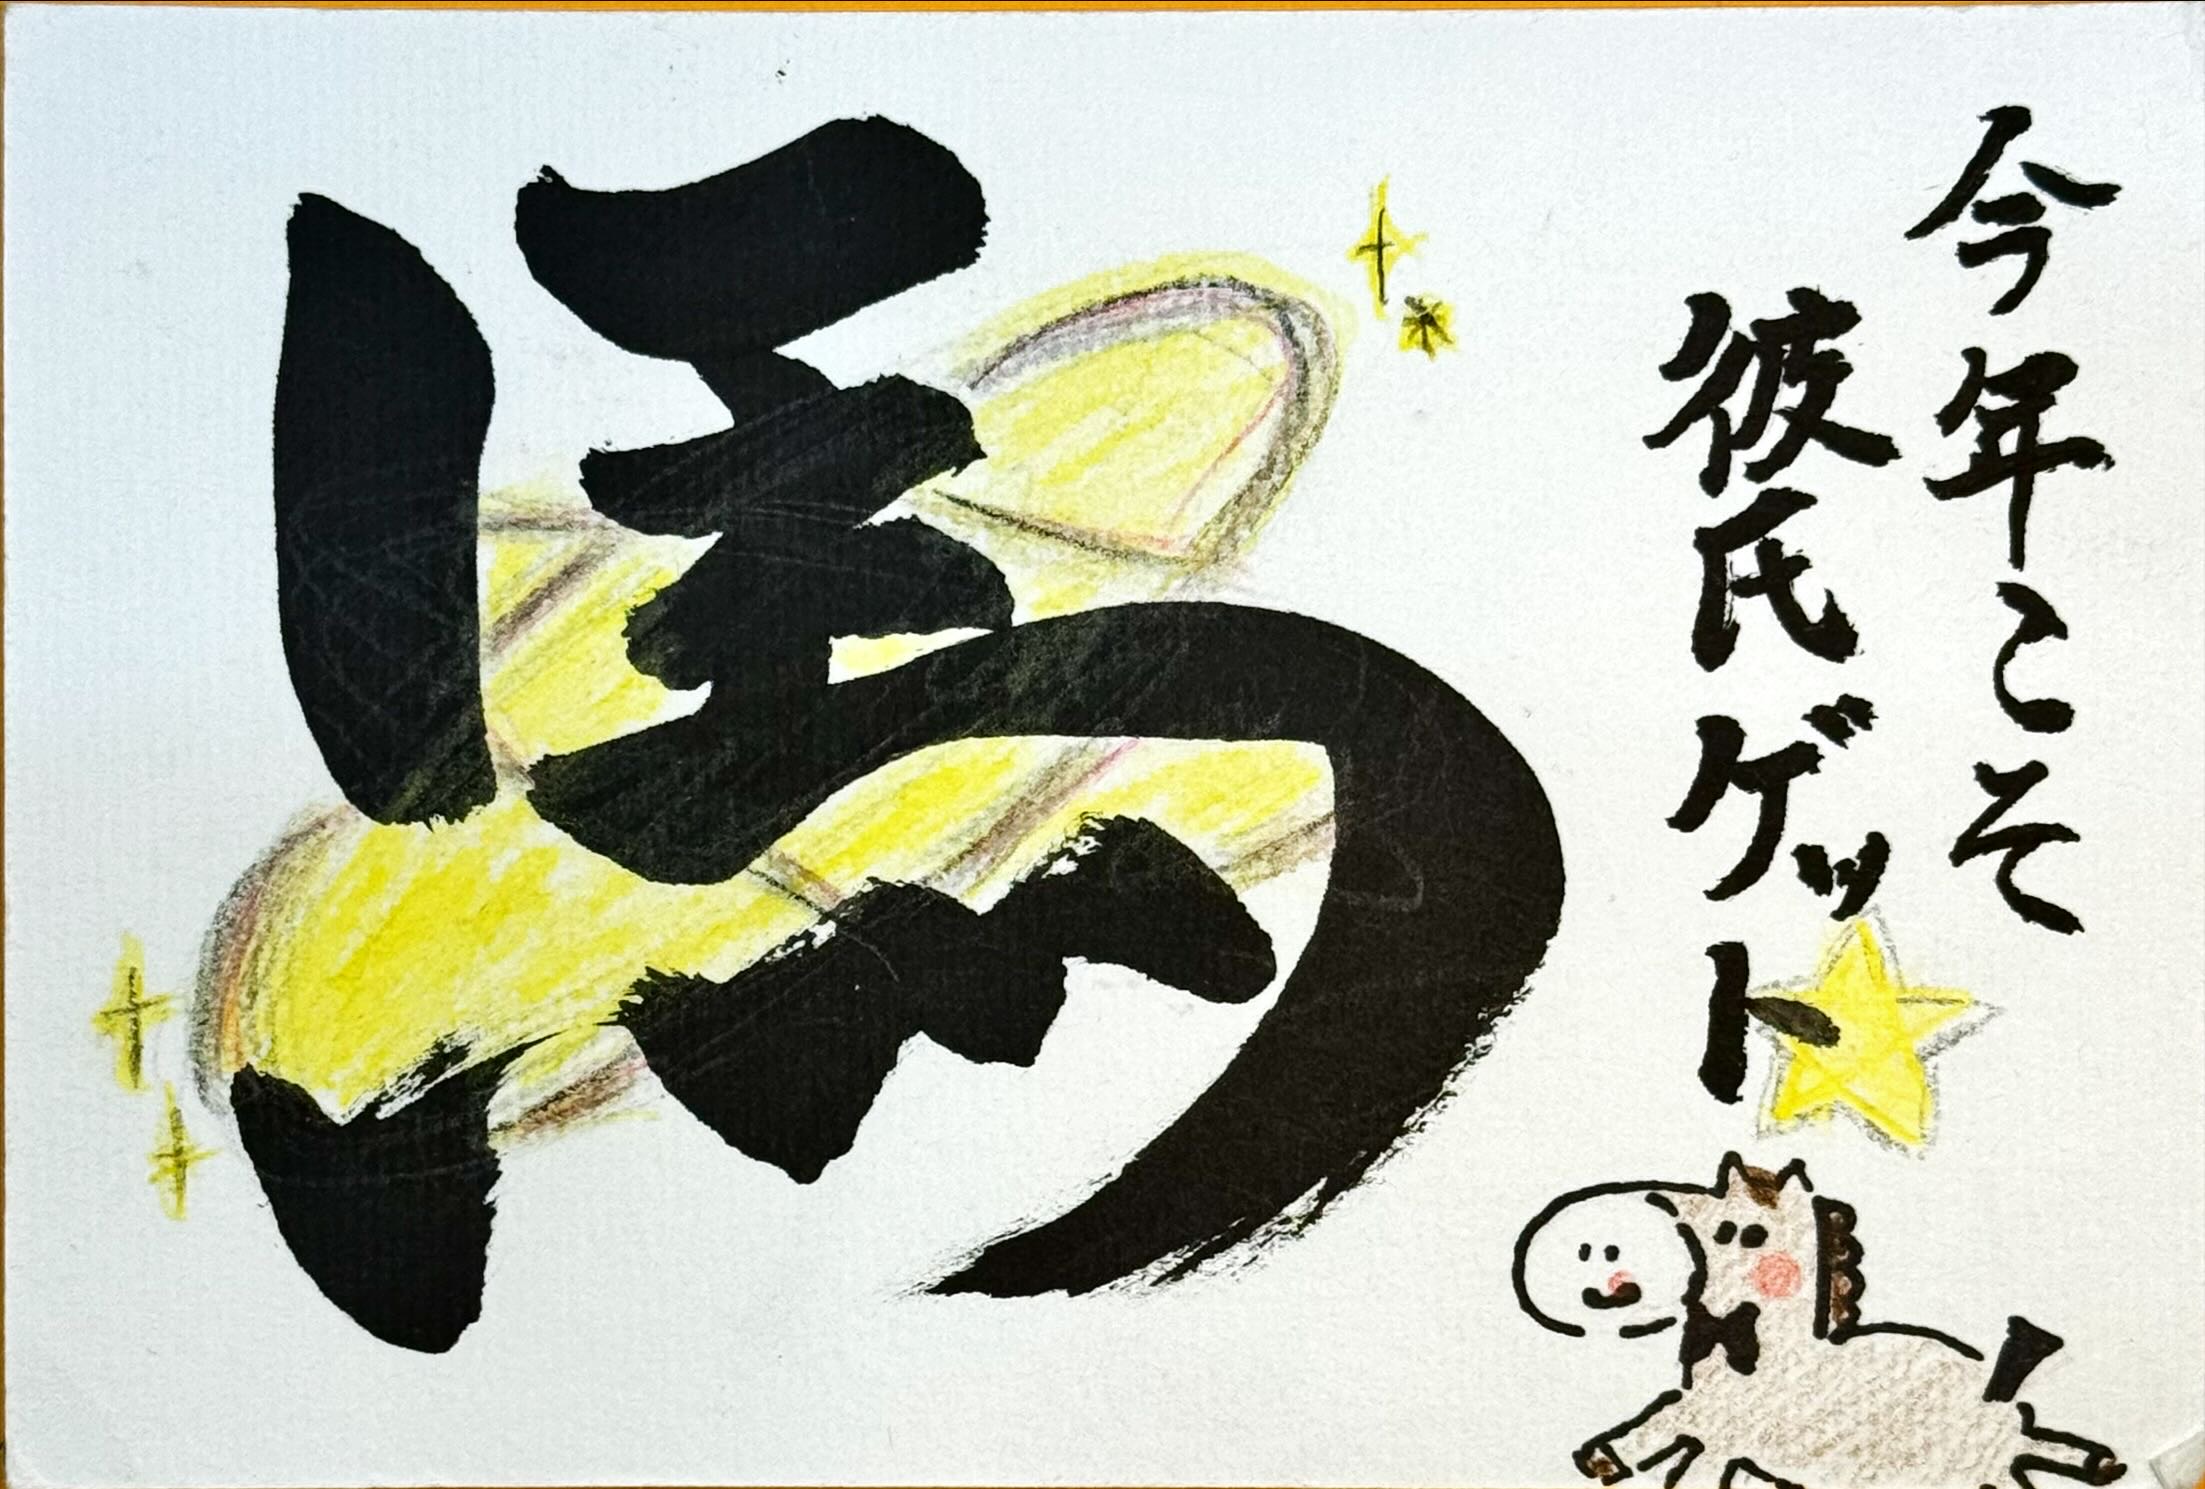 今年こそ
彼氏ゲット
馬